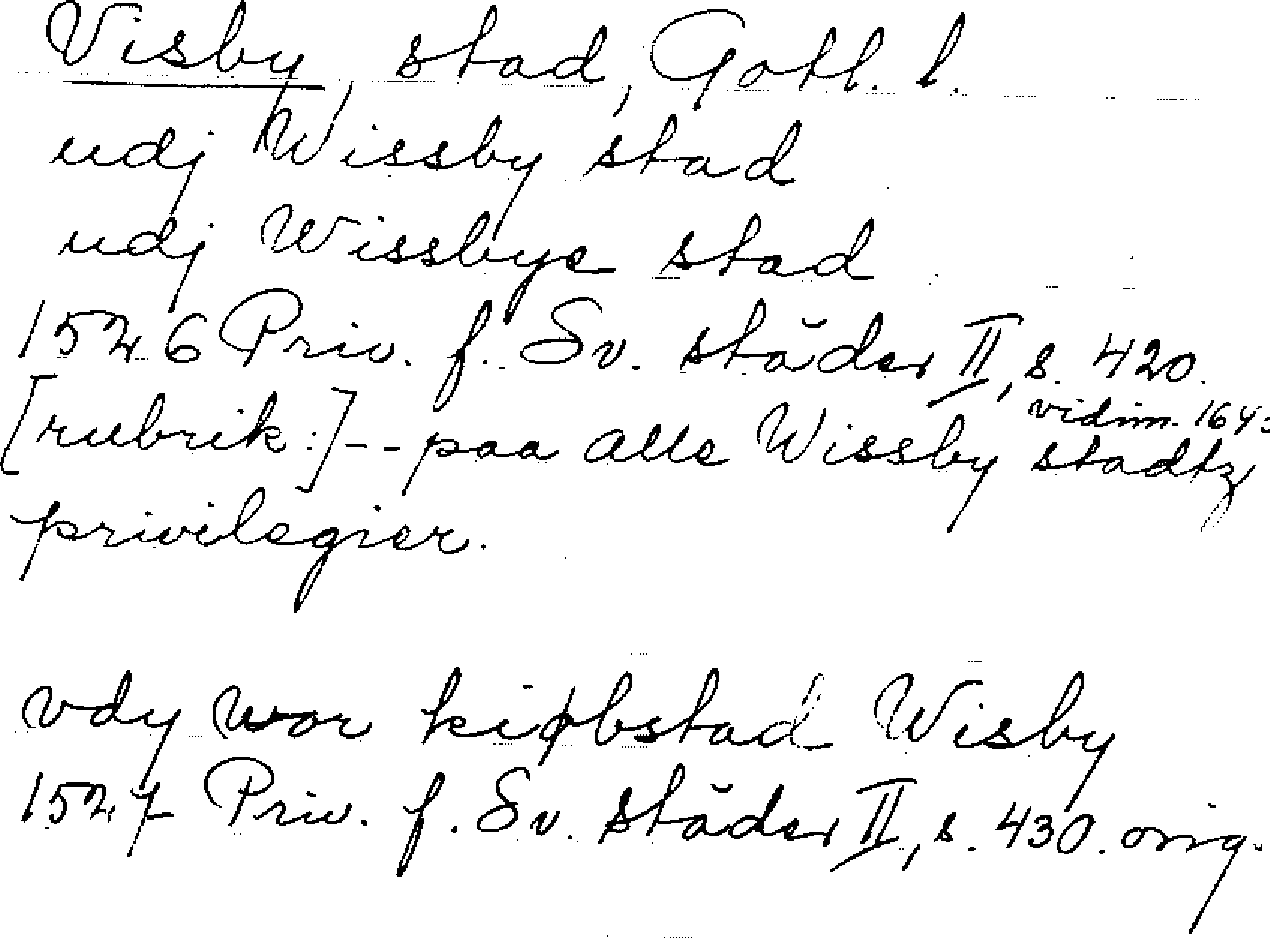 Visby, stad, Gotl. l.
udj Wissby stad
udj Wissbye stad
1526 Priv. f. Sv. städer II, s. 420.
vidim. 164
[rubrik:]--paa alle Wissby stadtz
privilegier.
vdy wor kiøbstad Wisby
1527 Priv. f. Sv. städer II, s. 430. orig.